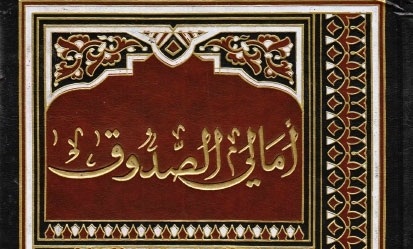 أمالي الصَّدُوق